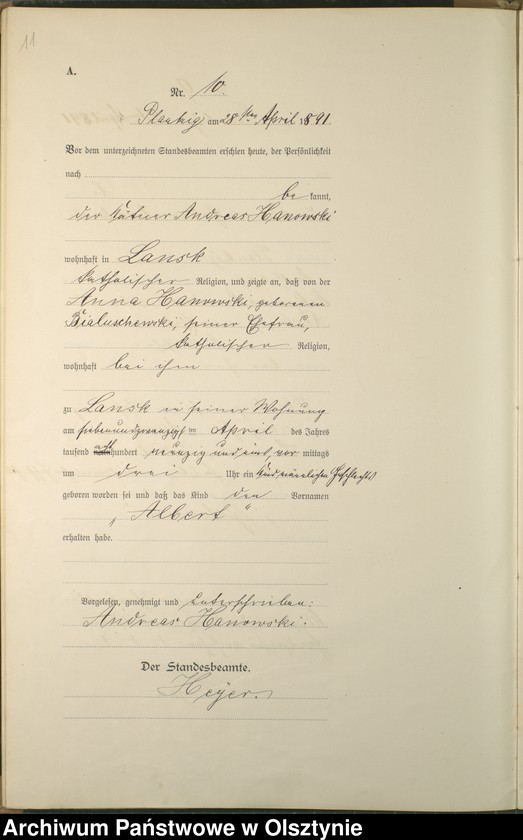 11
A.
Nr. 10.
Plautzig am 28ten April 1891
Vor dem unterzeichneten Standesbeamten erschien heute, der Persönlichkeit
nach
bekannt,
der Kätner Andreas Hanowski
wohnhaft in Lansk
katholischer Religion, und zeigte an, daß von der
Anna Hanowski, geborenen
Bialuschewski, seiner Ehefrau,
katholischer Religion,
wohnhaft bei ihm
zu Lansk in seiner Wohnung
am siebenundzwanzigsten April des Jahres
tausend acht hundert neunzig und eins, vor mittags
um drei Uhr ein Kind männlichen Geschlechts
geboren worden sei und daß das Kind den Vornamen
„Albert“
erhalten habe.
Vorgelesen, genehmigt und unterschrieben:
Andreas Hanowski.
Der Standesbeamte.
Heyer.
Archiwum Państwowe w Olsztynie